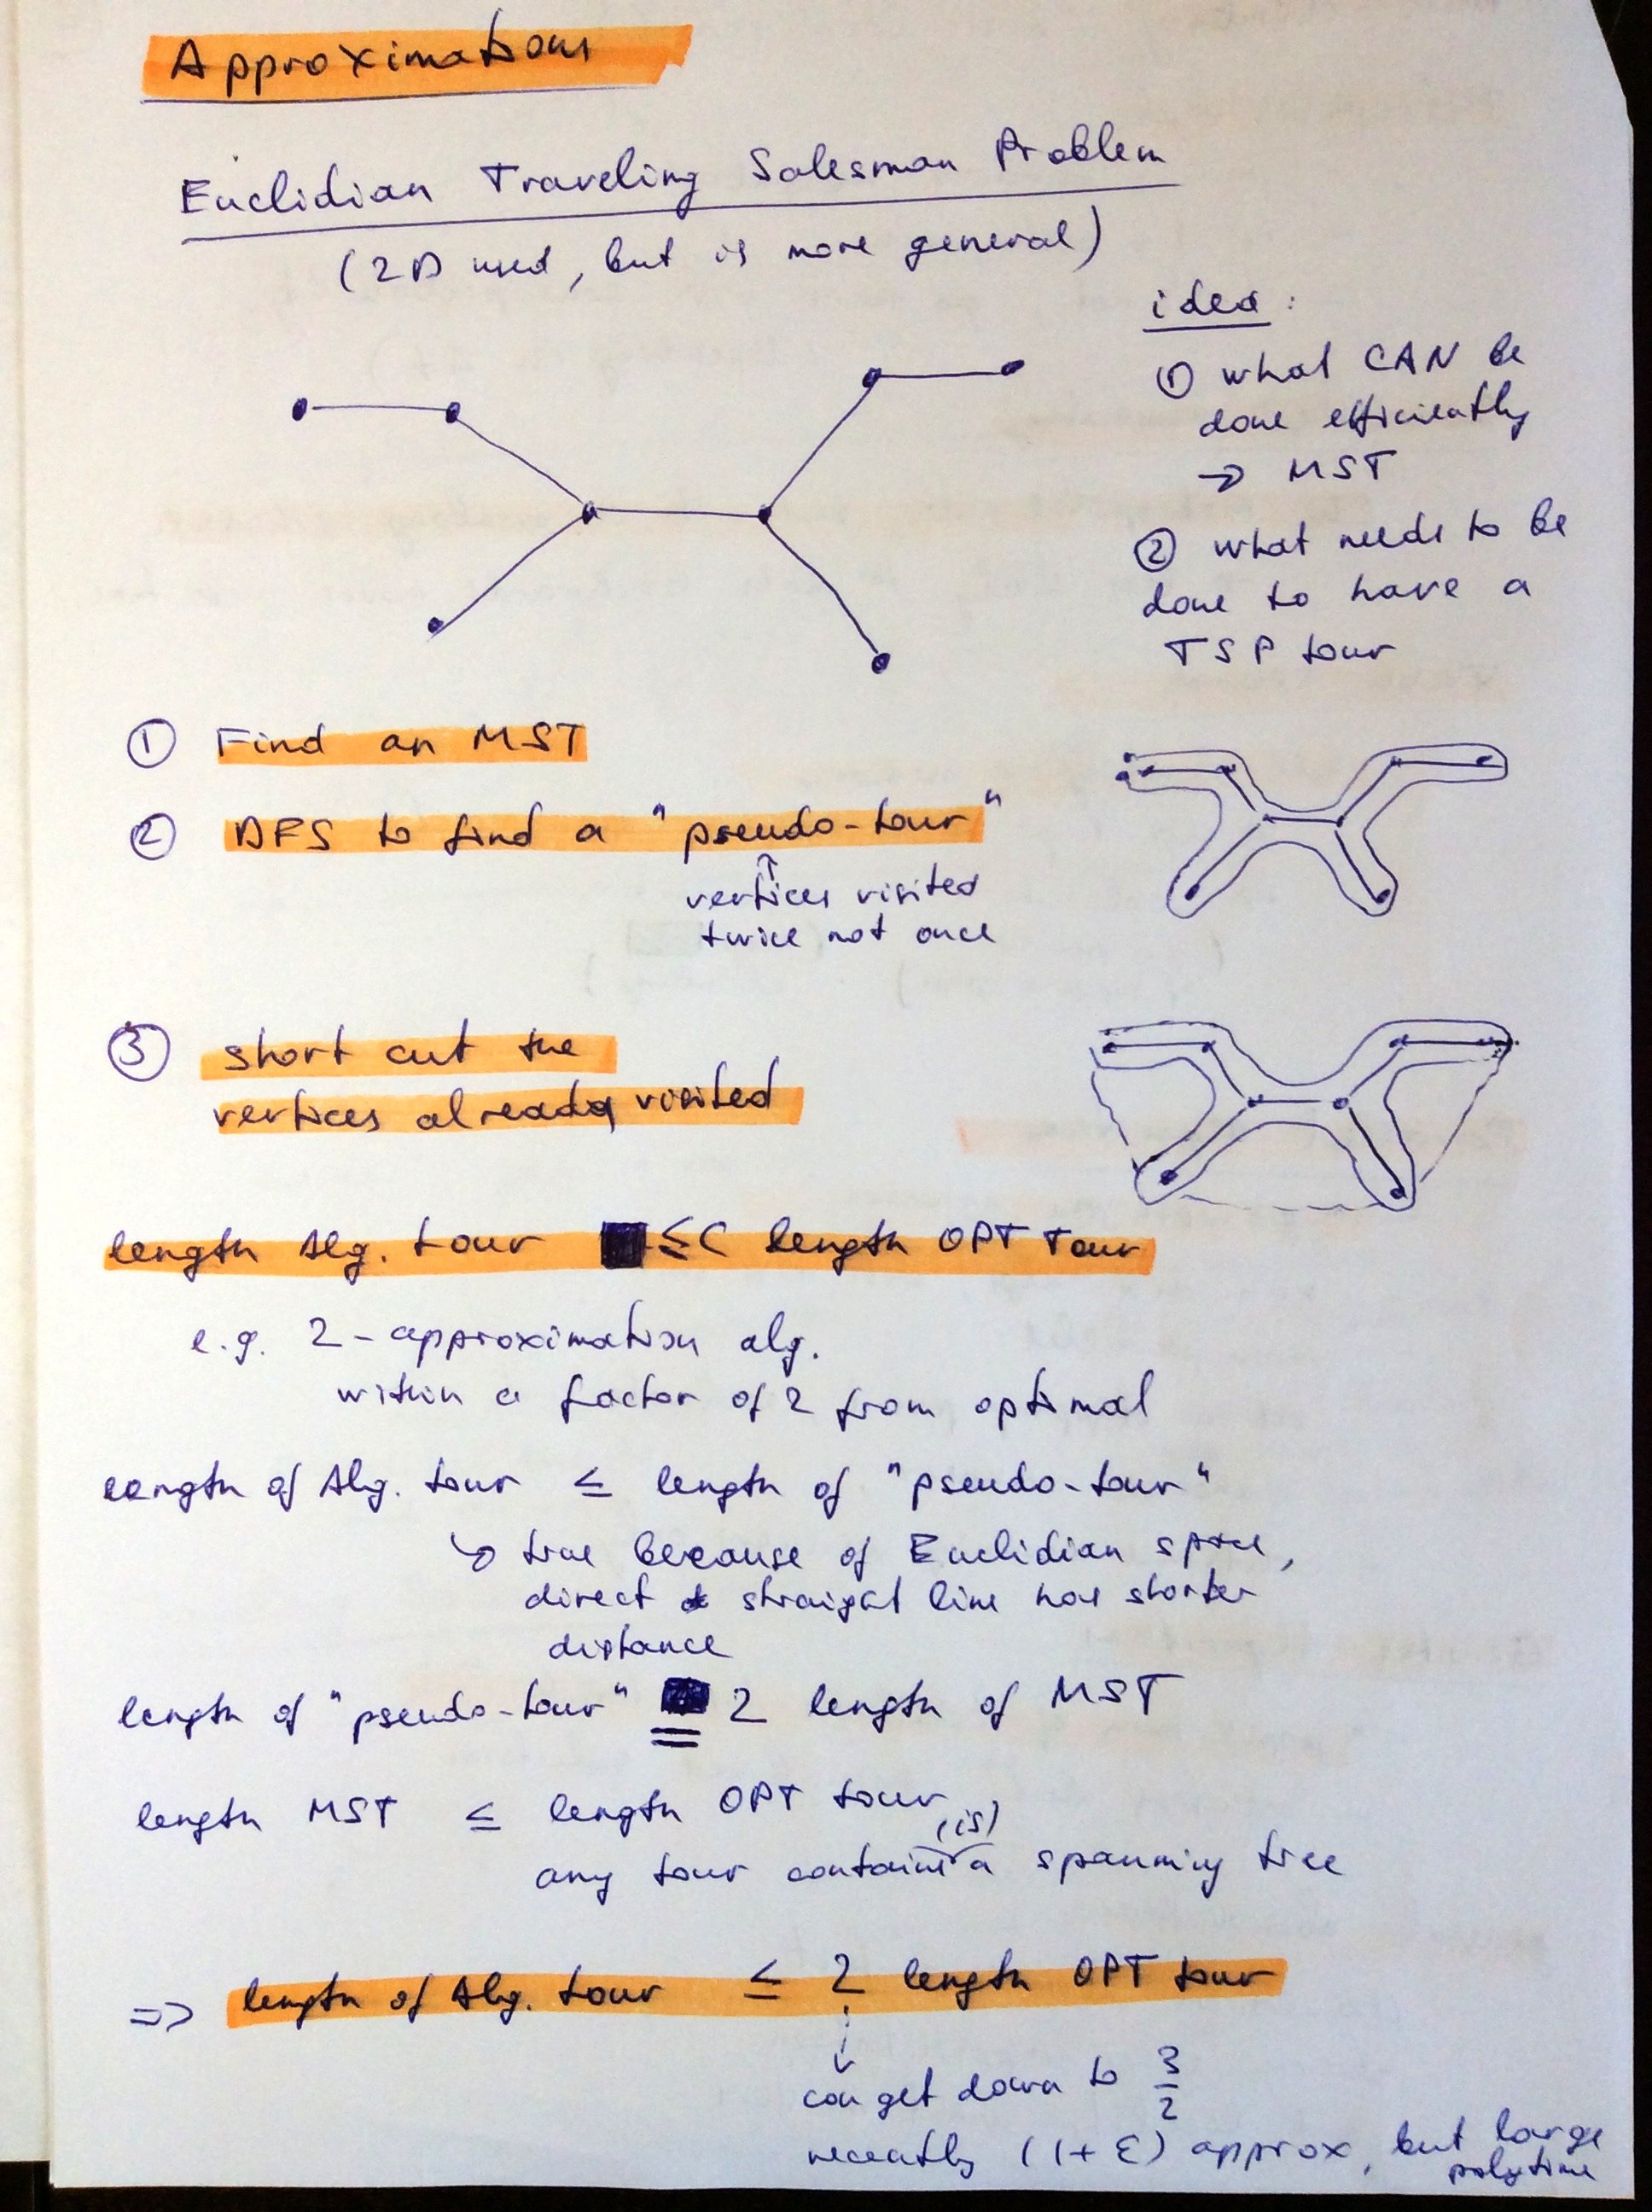 Approximations
Euclidian Traveling Salesman Problem
(2D used, but is more general)
idea:
① what CAN be
done efficiently
→ MST
② what needs to be
done to have a
TSP tour
① Find an MST
② DFS to find a "pseudo-tour"
↑
vertices visited
twice not once
③ short cut the
vertices already visited
length Alg. tour ≤ C length OPT Tour
e.g. 2-approximation alg.
within a factor of 2 from optimal
length of Alg. tour ≤ length of "pseudo-tour"
↳ true because of Euclidian space,
direct straight line has shorter
distance
length of "pseudo-tour" = 2 length of MST
length MST ≤ length OPT tour
(is)
any tour contains a spanning tree
=> length of Alg. tour ≤ 2 length OPT tour
can get down to 3/2
recently (1+ε) approx, but large
polytime